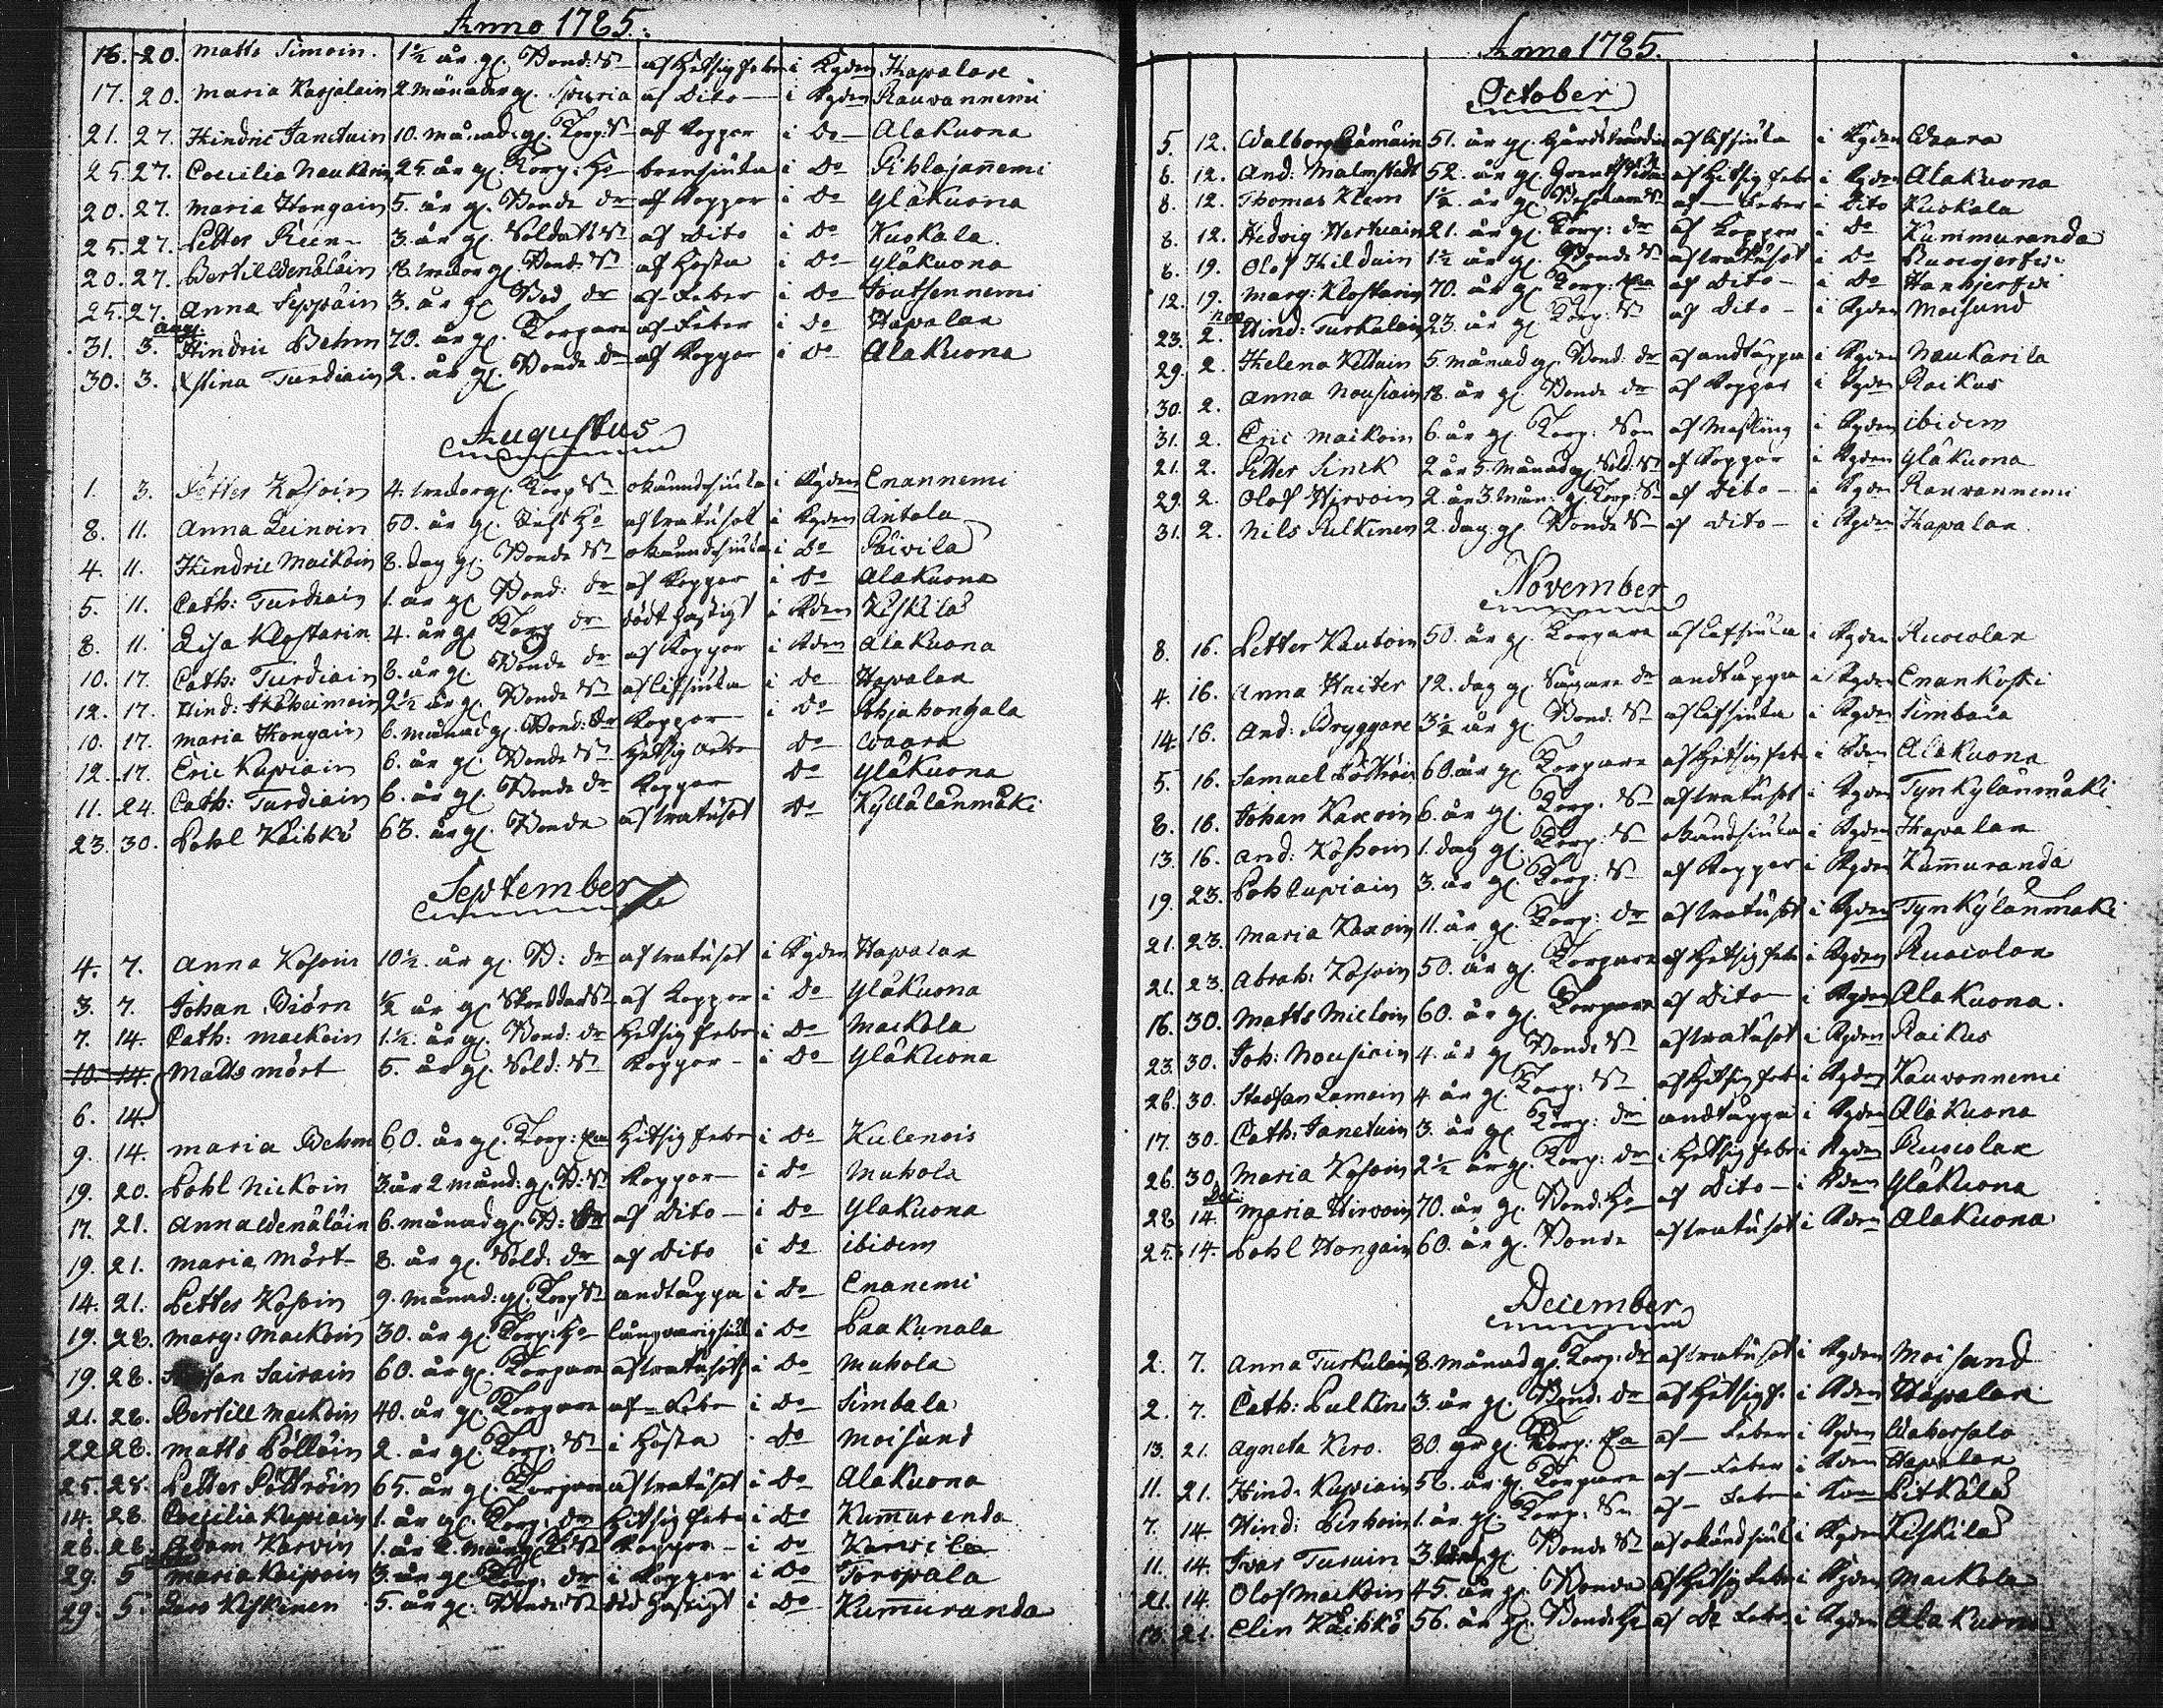 Anno 1785.
16. 20. Matts Simoin. 1½ år gl. Bond: Sn af Hetsig feber i Kyden Hapalax
17. 20. Maria Karjalain 2 månader gl. Spuria af Dito i Kyden Rauvannemi
21. 27. Hindric Janetuin 10. månad: gl. Torp: Sn af Koppor i Do Alakuona
25. 27. Coecilia Naukkrin 25. år gl. Torp: Ho brensiuka i Do Pihlajannemi
20. 27. Maria Hongain 5. år gl. Bonde dr af Koppor i Do Yläkuona
25. 27. Petter Rein 3. år gl. Soldats Sn af Dito i Do Kuokala.
20. 27. Bertill Wenäläin 18. weckor gl. Bond: Sn af Hosta i Do Yläkuona
25. 27. Anna Seppäin 3. år gl Bod dr af Feber i Do Joutsennemi
31. aug. 3. Hindric Behm 79. år gl. Torpare af Feber i Do Hapalax
30. 3. Xstina Turdiain 2. år gl. Bonde dr af Koppor i Do Alakuona
Augustus
1. 3. Petter Kosoin 4. weckor gl. Torp Sn okiändesiuka i Kyden Enannemi
8. 11. Anna Leinoin 50. år gl. Ho af wattusot i Kyden Antola
4. 11. Hindric Maickoin 8. dag gl. Bonde Sn okiändesiuka i Do Päivilä
5. 11. Cath: Turdiain 1. år gl Bond: dr af Koppor i Do Alakuona
8. 11. Lisa Klostarin 4. år gl Torp dr dödt hastigt i Kyden Kiskilä
10. 17. Cath: Turdiain 8. år gl. Bonde dr af Koppor i Kyden Alakuona
12. 17. Hind: 2½ år gl. Bonde Sn af lefsiuka i Do Hapalax
10. 17. Maria Hongain 6. månad gl. Bond: dr Koppor i Do Pohjahongala
12. 17. Eric Kupiain 6. år gl. Bonde Sn Hetsig feber Do Waara
11. 24. Cath: Turdiain 6. år gl. Bonde dr Koppor Do Yläkuona
23. 30. Pohl Käihkö 63. år gl. Bonde af wattusot Do Kyllälänmäki
September
4. 7. Anna Kosoin 10½. år gl. B: dr af wattusot i Kyden Hapalax
3. 7. Johan Biörn ½ år gl Skreddars Sn af Koppor i Do Yläkuona
7. 14. Cath: Mackoin 1½. år gl. Bond: dr Hetsig feber i Do Mackola
10. 14. Matts Mört 5. år gl. Sold: Sn Koppor i Do Yläkuona
6. 14.
9. 14. Maria Behm 60. år gl. Torp: Ea Hitsig feber i Do Kulenois
19. 20. Pohl Nickoin 3 år 2 månd: gl. B: Sn Koppor i Do Muhola
17. 21. Anna Wenäläin 6. månad gl. B: dr af Dito i Do Yläkuona
19. 21. Maria Mört 8. år gl. Sold: dr af Dito i Do ibidem
14. 21. Petter Kosoin 9. månad: gl. Torp Sn andtäppa i Do Enanemi
19. 28. Marg: Mackoin 30. år gl. Torp: Ho långwarigsiuk i Do Paakunala
19. 28. Sairain 60. år gl. Torpare af wattusot i Do Muhola
21. 28. Bertill Mackoin 40. år gl. Torpare af Feber i Do Simbala
22. 28. Matts Pölläin 2. år gl. Torp: Sn i Hosta Do Moisund
25. 28. Petter Pöllröin 65. år gl. Torpare af wattusot i Do Alakuona
14. 28. Coecilia Kupiain 1. år gl. Torp: dr Hitsig feber i Do Kummuranda
26. 28. Adam Karvin 1. år 2. mån: gl. Sn Koppor i Do Karvila
29. 5 Maria Kaipoin 3. år gl Torp: dr i Koppor i Do Toropala
29. 5. Lars Kiskinen 5. år gl. Bonde Sn död hastigt i Do Kummuranda
Anno 1785.
October
5. 12. Walborg Pämäin 51. år gl. af lefsiuka i Kyden Waara
6. 12. And: Malmstedt 52. år gl. af Hitsig feber i Kyden Alakuona
8. 12. Thomas Klem 1½. år gl Sn af Feber i Dito Kuokala
8. 12. Hedvig Hertuain 21. år gl. Torp: dr af Koppor i Do Kummuranda
6. 19. Olof Hilduin 1½ år gl. Bonde Sn af wattusot i Do
12. 19. Marg: Klostarin 70. år gl. Torp: Ea af Dito i Do Hanhjerfvi
23. nov 2. Hind: Turkulain 23. år gl Torp: Sn af Dito i Kyden Moisund
29. 2. Helena Keltuin 5. månad gl Bond: dr af andtäppa i Kyden Naukarila
30. 2. Anna Nousiain 18. år gl. Bonde dr af Koppor i Kyden Raikus
31. 2. Eric Maikoin 6. år gl. Torp: Son af Messling i Kyden ibidem
21. 2. Petter Sinck 2 år 5. månad gl. Sold: Sn af Koppor i Kyden Yläkuona
29. 2. Olof Hirvoin 2. år 3. mån: gl Torp: Sn af Dito i Kyden Rauvannemi
31. 2. Nils Pulkinen 2. dag: gl Bonde Sn af Dito i Kyden Hapalax
November
8. 16. Petter Kautoin 50. år gl. Torpare af lefsiuka i Kyden Ruocolax
4. 16. Anna Hniter 12. dag gl dr andtäppa i Kyden Enankoski
14. 16. And: Bryggare 3½ år gl. Bond: Sn af lefsiuka i Kyden Simbala
5. 16. Samuel Pöllröin 60. år gl. Torpare af Hitsig feber i Kyden Alakuona
8. 16. Johan Kaxoin 6. år gl. Torp. Sn af wattusot i Kyden Tynkylänmäki
13. 16. And: Kossoin 1. dag gl. Torp: Sn okändsiuka i Kyden Hapalax
19. 23. Pohl Lupiain 3. år gl. Torp: Sn af Koppor i Kyden Kummuranda
21. 23. Maria Kaxoin 11. år gl. Torp: dr af wattusot i Kyden Tynkylänmäki
21. 23. Abrah: Kosoin 50. år gl. Torpare af Hetsig feber i Kyden Ruocolax
16. 30. Matts Micloin 60. år gl. Torpare af Dito i Kyden Alakuona.
23. 30. Joh: Nousiain 4. år gl Bonde Sn af wattusot i Kyden Raikus
26. 30. Staffan Lamoin 4. år gl. Torp: Sn af Hitsig feber i Kyden Rauvonnemi
17. 30. Cath: Janetuin 3. år gl. Torp: dr andtäppa i Kyden Alakuona
26. 30. Maria Kosoin 2½ år gl. Torp: dr i Hetsig feber i Kyden Ruocolax
28. Dec: 14. Maria Hirvoin 70. år gl. Bond: Ho af Dito i Kyden Yläkuona
25. 14. Pohl Hongain 60. år gl. Bonde af wattusot i Kyden Alakuona
December
2. 7. Anna Turkulain 8. månad gl. Torp: dr af wattusot i Kyden Moisund
2. 7. Cath: Pulkine 3. år gl. Bond: dr af Hetsig f. i Kyden Hapalax
13. 21. Agneta Kero. 80. år gl. Torp: Ea af Feber i Kyden
11. 21. Hind. Kupiain 56. år gl Torpare af Feber i Kyden Hapalax
7. 14. Hind: Pirhoin 1. år gl. Torp: Sn af Feber i Pitkälä
11. 14. Ivar Turuin 3. gl Bonde Sn af okänd siuk i Kyden Kiskilä
21. 14. Olof Mackoin 45. år gl. Bonde af Hetsig feber i Kyden Mackola
13. 21. Elin Käihkö 56. år gl. Bonde Ho af Do Feber i Kyden Alakuona